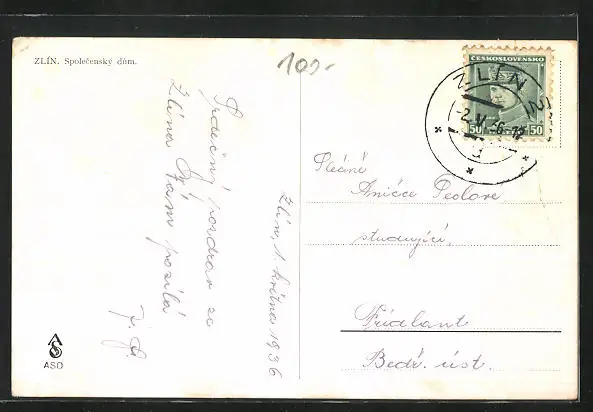 ZLÍN. Společenský dům.
109-
Srdečný pozdrav ze
Zlína Vám posílá
Zlín, 1. května 1936
ASO
ČESKOSLOVENSKO
50 50
ZLÍN 2
-2.V.36.-
Slečně
Aničce
studující.
Frídlant
Bedř. úst.